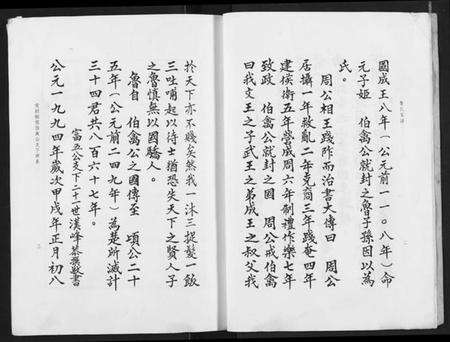 國成王八年（公元前一一○八年）命
元子姬　伯禽公就封之魯子孫因以為
氏。
周公相王踐阼而治書大傳曰　周公
居攝一年救亂二年克商三年踐奄四年
建侯衛五年營成周六年制禮作樂七年
致政　伯禽公就封之國　周公戒伯禽
曰我文王之子武王之弟成王之叔父我
於天下亦不賤矣然我一沐三捉髮一飯
三吐哺起以待士猶恐失天下之賢人子
之魯慎無以國驕人。
魯自　伯禽公之國傳至　頃公二十
五年（公元前二四九年）為楚所滅計
三十四君共八百六十七年。
富五公支下二十一世漢峰恭撰敬書
公元一九九四年歲次甲戌年正月初八